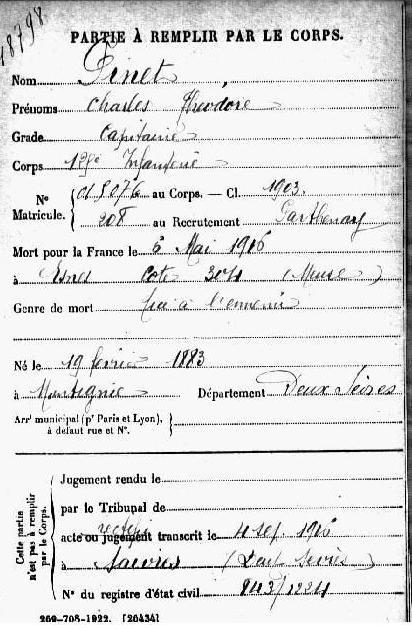 18798
PARTIE À REMPLIR PAR LE CORPS.
Nom Pinet
Prénoms Charles Théodore
Grade Capitaine
Corps Infanterie
N° Matricule. { 018076 au Corps. — Cl. 1903.
208 au Recrutement Parthenay
Mort pour la France le 6 Mai 1916
à Esnes Cote 304 (Meuse)
Genre de mort tué à l'ennemi
Né le 19 février 1883
à Département Deux Sèvres
Arrt municipal (pr Paris et Lyon), à défaut rue et N°. {
Cette partie n'est pas à remplir par le Corps.
Jugement rendu le
par le Tribunal de
acte ou jugement transcrit le 4 sep. 1916
à (Deux Sèvres)
N° du registre d'état civil 943/1224
269-708-1922. [26434]